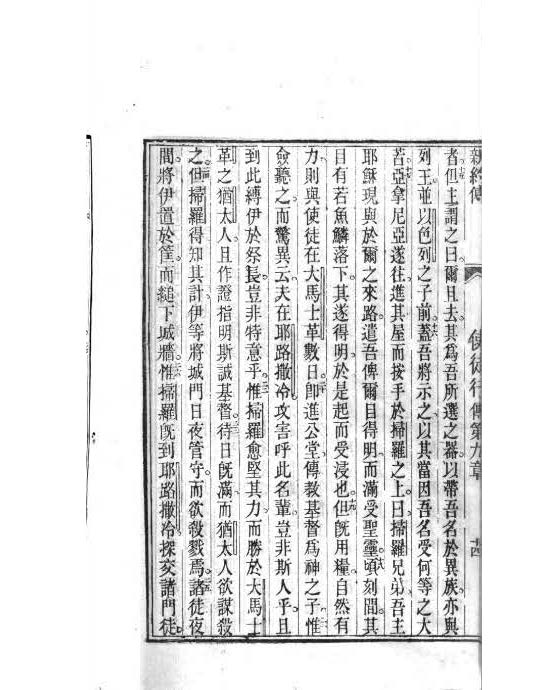 新約傳 使徒行傳第九章 十四
者但主謂之曰爾且去其為吾所選之器以帶吾名於異族亦與
列王並以色列之子前蓋吾將示之以其當因吾名受何等之大
苦亞拿尼亞遂往進其屋而按手於掃羅之上曰掃羅兄弟吾主
耶穌現與於爾之來路遣吾俾爾目得明而滿受聖靈頃刻間其
目有若魚鱗落下其遂得明於是起而受浸也但既用糧自然有
力則與使徒在大馬士革數日即進公堂傳教基督為神之子惟
僉聽之而驚異云夫在耶路撒冷攻害呼此名輩豈非斯人乎且
到此縛伊於祭長豈非特意乎惟掃羅愈堅其力而勝於大馬士
革之猶太人且作證指明斯誠基督待日既滿而猶太人欲謀殺
之但掃羅得知其計伊等將城門日夜管守而欲殺戮焉諸徒夜
間將伊置於筐而縋下城牆惟掃羅既到耶路撒冷探交諸門徒